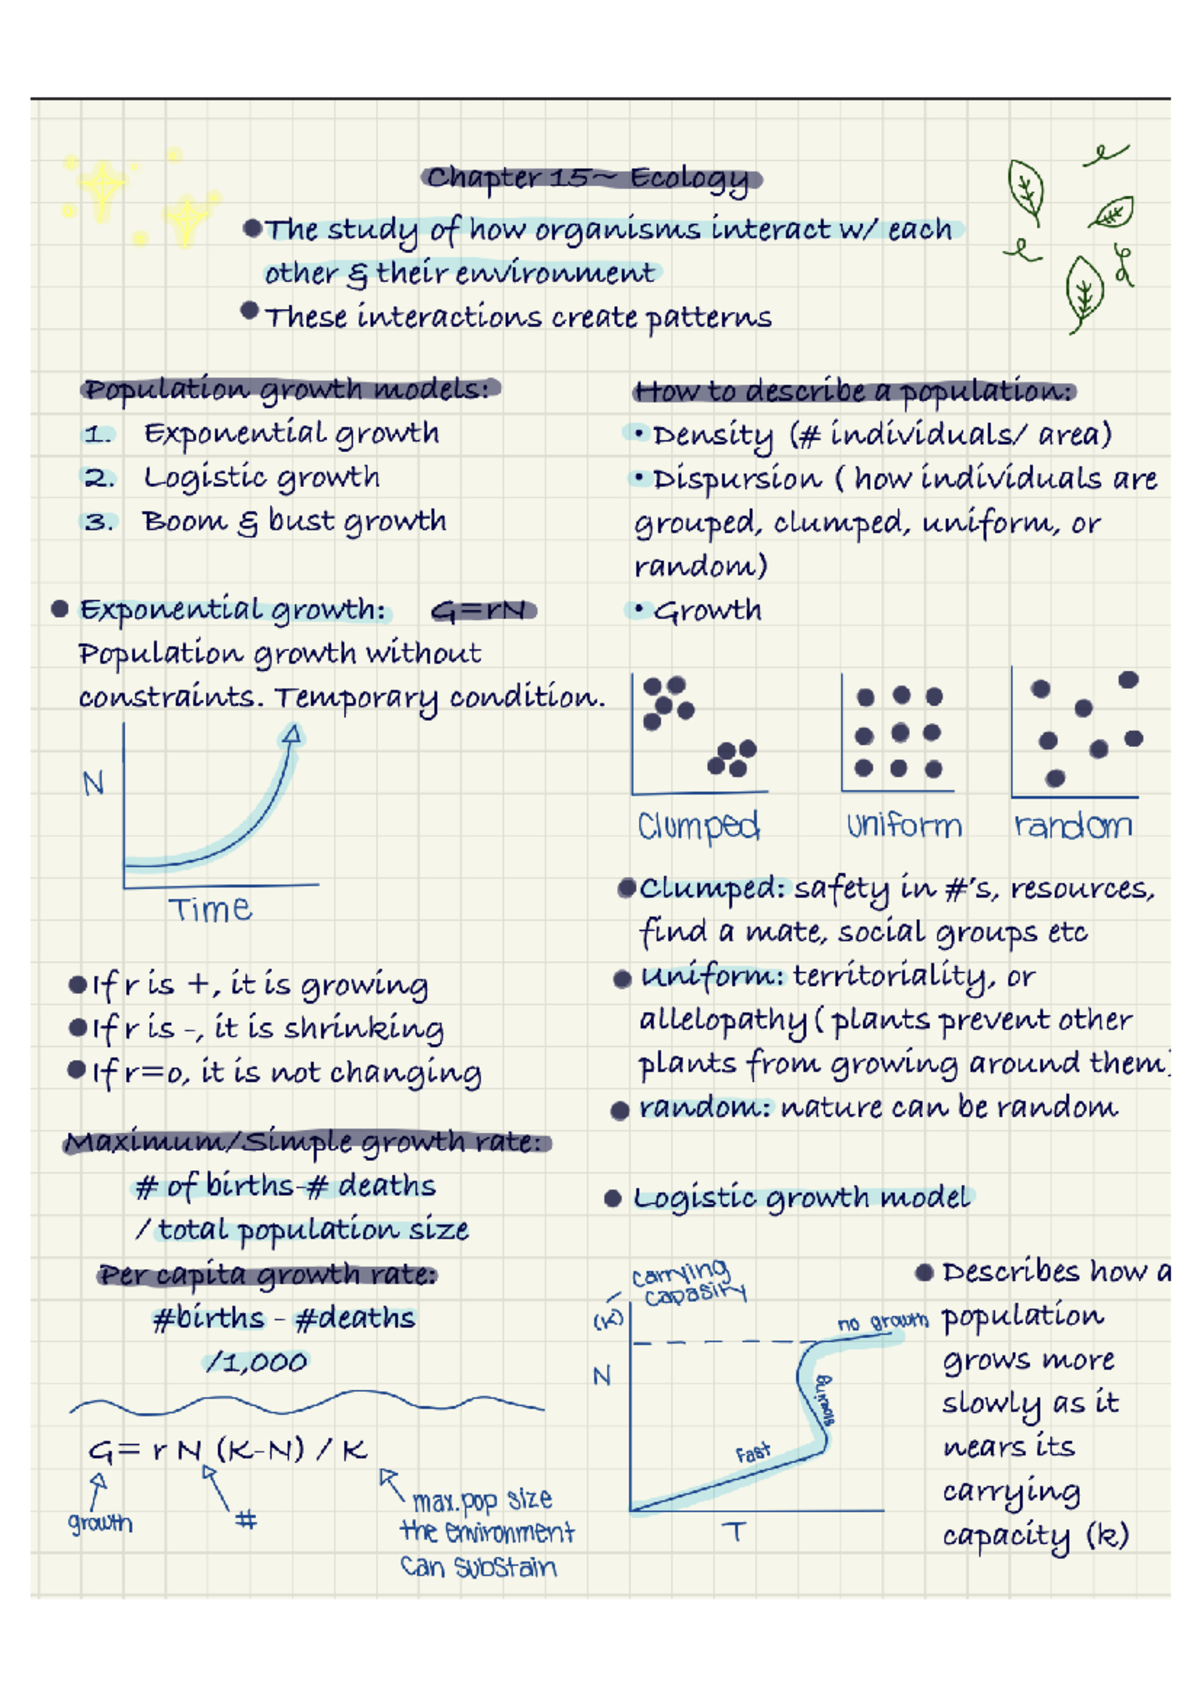 Chapter 15~ Ecology
The study of how organisms interact w/ each
other & their environment
These interactions create patterns
Population growth models:
1. Exponential growth
2. Logistic growth
3. Boom & bust growth
Exponential growth: G=rN
Population growth without
constraints. Temporary condition.
N
Time
If r is +, it is growing
If r is -, it is shrinking
If r=0, it is not changing
Maximum/Simple growth rate:
# of births-# deaths
/ total population size
Per capita growth rate:
#births - #deaths
/1,000
G= r N (K-N) / K
growth
#
max.pop size
the environment
can substain
How to describe a population:
• Density (# individuals/ area)
• Dispursion ( how individuals are
grouped, clumped, uniform, or
random)
• Growth
Clumped
uniform
random
Clumped: safety in #'s, resources,
find a mate, social groups etc
uniform: territoriality, or
allelopathy ( plants prevent other
plants from growing around them)
random: nature can be random
Logistic growth model
carrying
capasity
(K)
N
no growth
slowing
Fast
T
Describes how a
population
grows more
slowly as it
nears its
carrying
capacity (k)